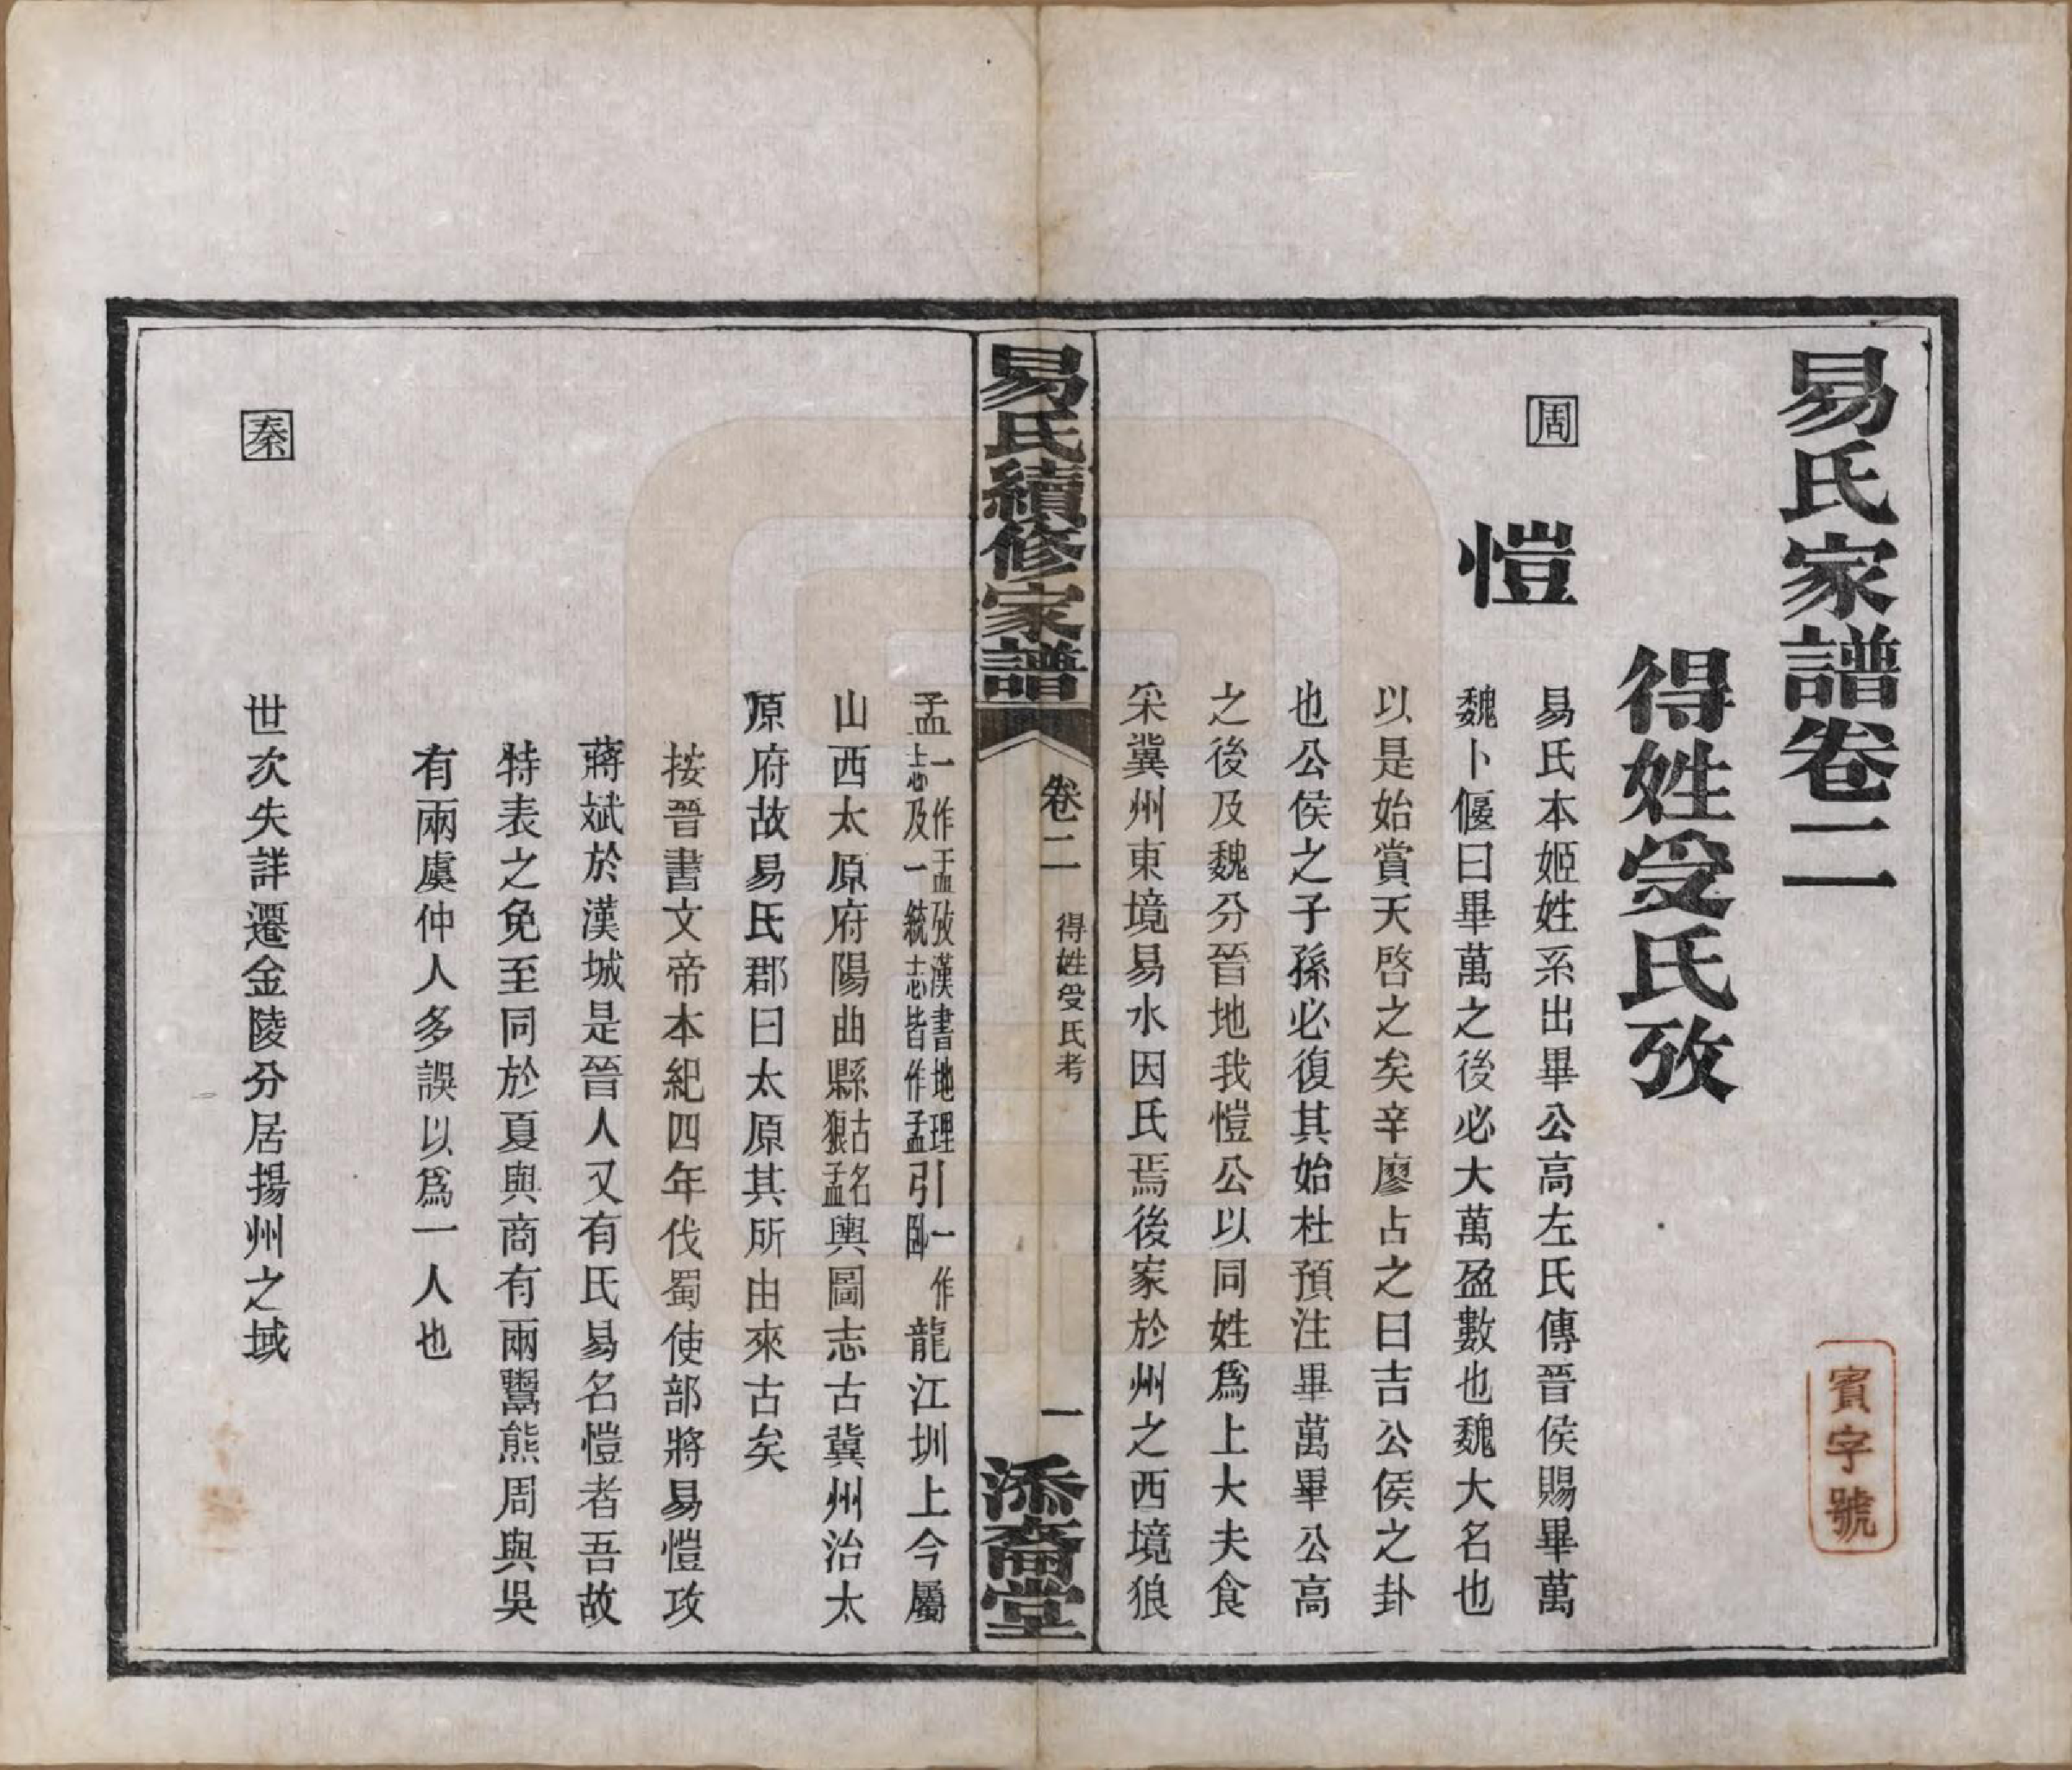 易氏家譜卷二
賓字號
得姓受氏攷
周
愷
易氏本姬姓系出畢公高左氏傳晉侯賜畢萬
魏卜偃曰畢萬之後必大萬盈數也魏大名也
以是始賞天啓之矣辛廖占之曰吉公侯之卦
也公侯之子孫必復其始杜預注畢萬畢公高
之後及魏分晉地我愷公以同姓爲上大夫食
采冀州東境易水因氏焉後家於州之西境狼
易氏續修家譜
卷二
得姓受氏考
一
添裔堂
孟一作盂攷漢書地理志及一統志皆作孟引一作卧龍江圳上今屬
山西太原府陽曲縣古名狼孟輿圖志古冀州治太
原府故易氏郡曰太原其所由來古矣
按晉書文帝本紀四年伐蜀使部將易愷攻
蔣斌於漢城是晉人又有氏易名愷者吾故
特表之免至同於夏與商有兩鬻熊周與吳
有兩虞仲人多誤以爲一人也
秦
世次失詳遷金陵分居揚州之域